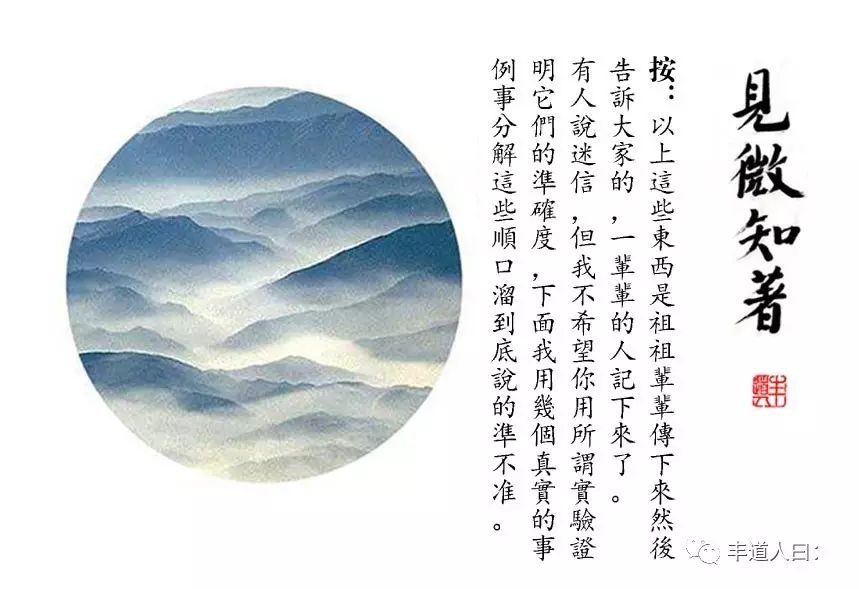 見微知著
按：以上這些東西是祖祖輩輩傳下來然後
告訴大家的，一輩輩的人記下來了。
有人說迷信，但我不希望你用所謂實驗證
明它們的準確度，下面我用幾個真實的事
例事分解這些順口溜到底說的準不准。
丰道人曰：